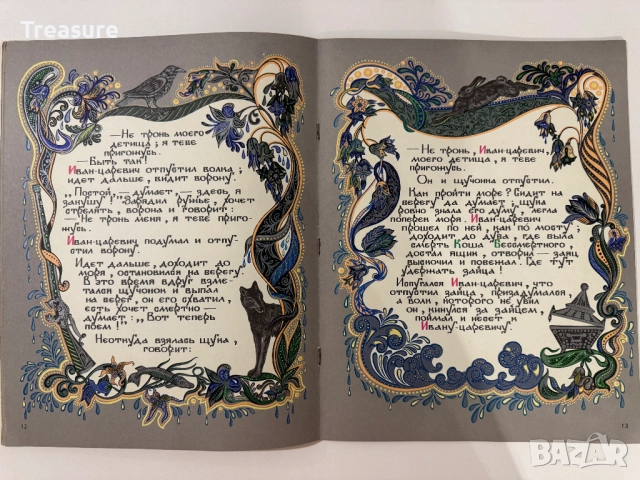 Treasure
—Не тронь моего
детища; я тебе
пригожусь.
—Быть так!
Иван-царевич отпустил волка;
идет дальше, видит ворону.
„Постой,—думает,— здесь я
закушу!" Зарядил ружье, хочет
стрелять, ворона и говорит:
—Не тронь меня, я тебе приго-
жусь.
Иван-царевич подумал и отпу-
стил ворону.
Идет дальше, доходит до
моря, остановился на берегу
В это время вдруг взме-
тался щучонок и выпал
на берег, он его схватил,
есть хочет смертно—
думает: „Вот теперь
поем!"
Неоткуда взялась щука,
говорит:
12
—Не тронь, Иван-царевич,
моего детища, я тебе
пригожусь.
Он и щучонка отпустил.
Как пройти море? Сидит на
берегу да думает; щука
ровно знала его думу, легла
поперек моря. Иван-царевич
прошел по ней, как по мосту;
доходит до дуба, где была
смерть Коша Бессмертного,
достал ящик, отворил— заяц
выскочил и побежал. Где тут
удержать зайца!
Испугался Иван-царевич, что
отпустил зайца, призадумался,
а волк, которого не убил
он, кинулся за зайцем,
поймал и несет к
Ивану-царевичу.
13
BAZAR